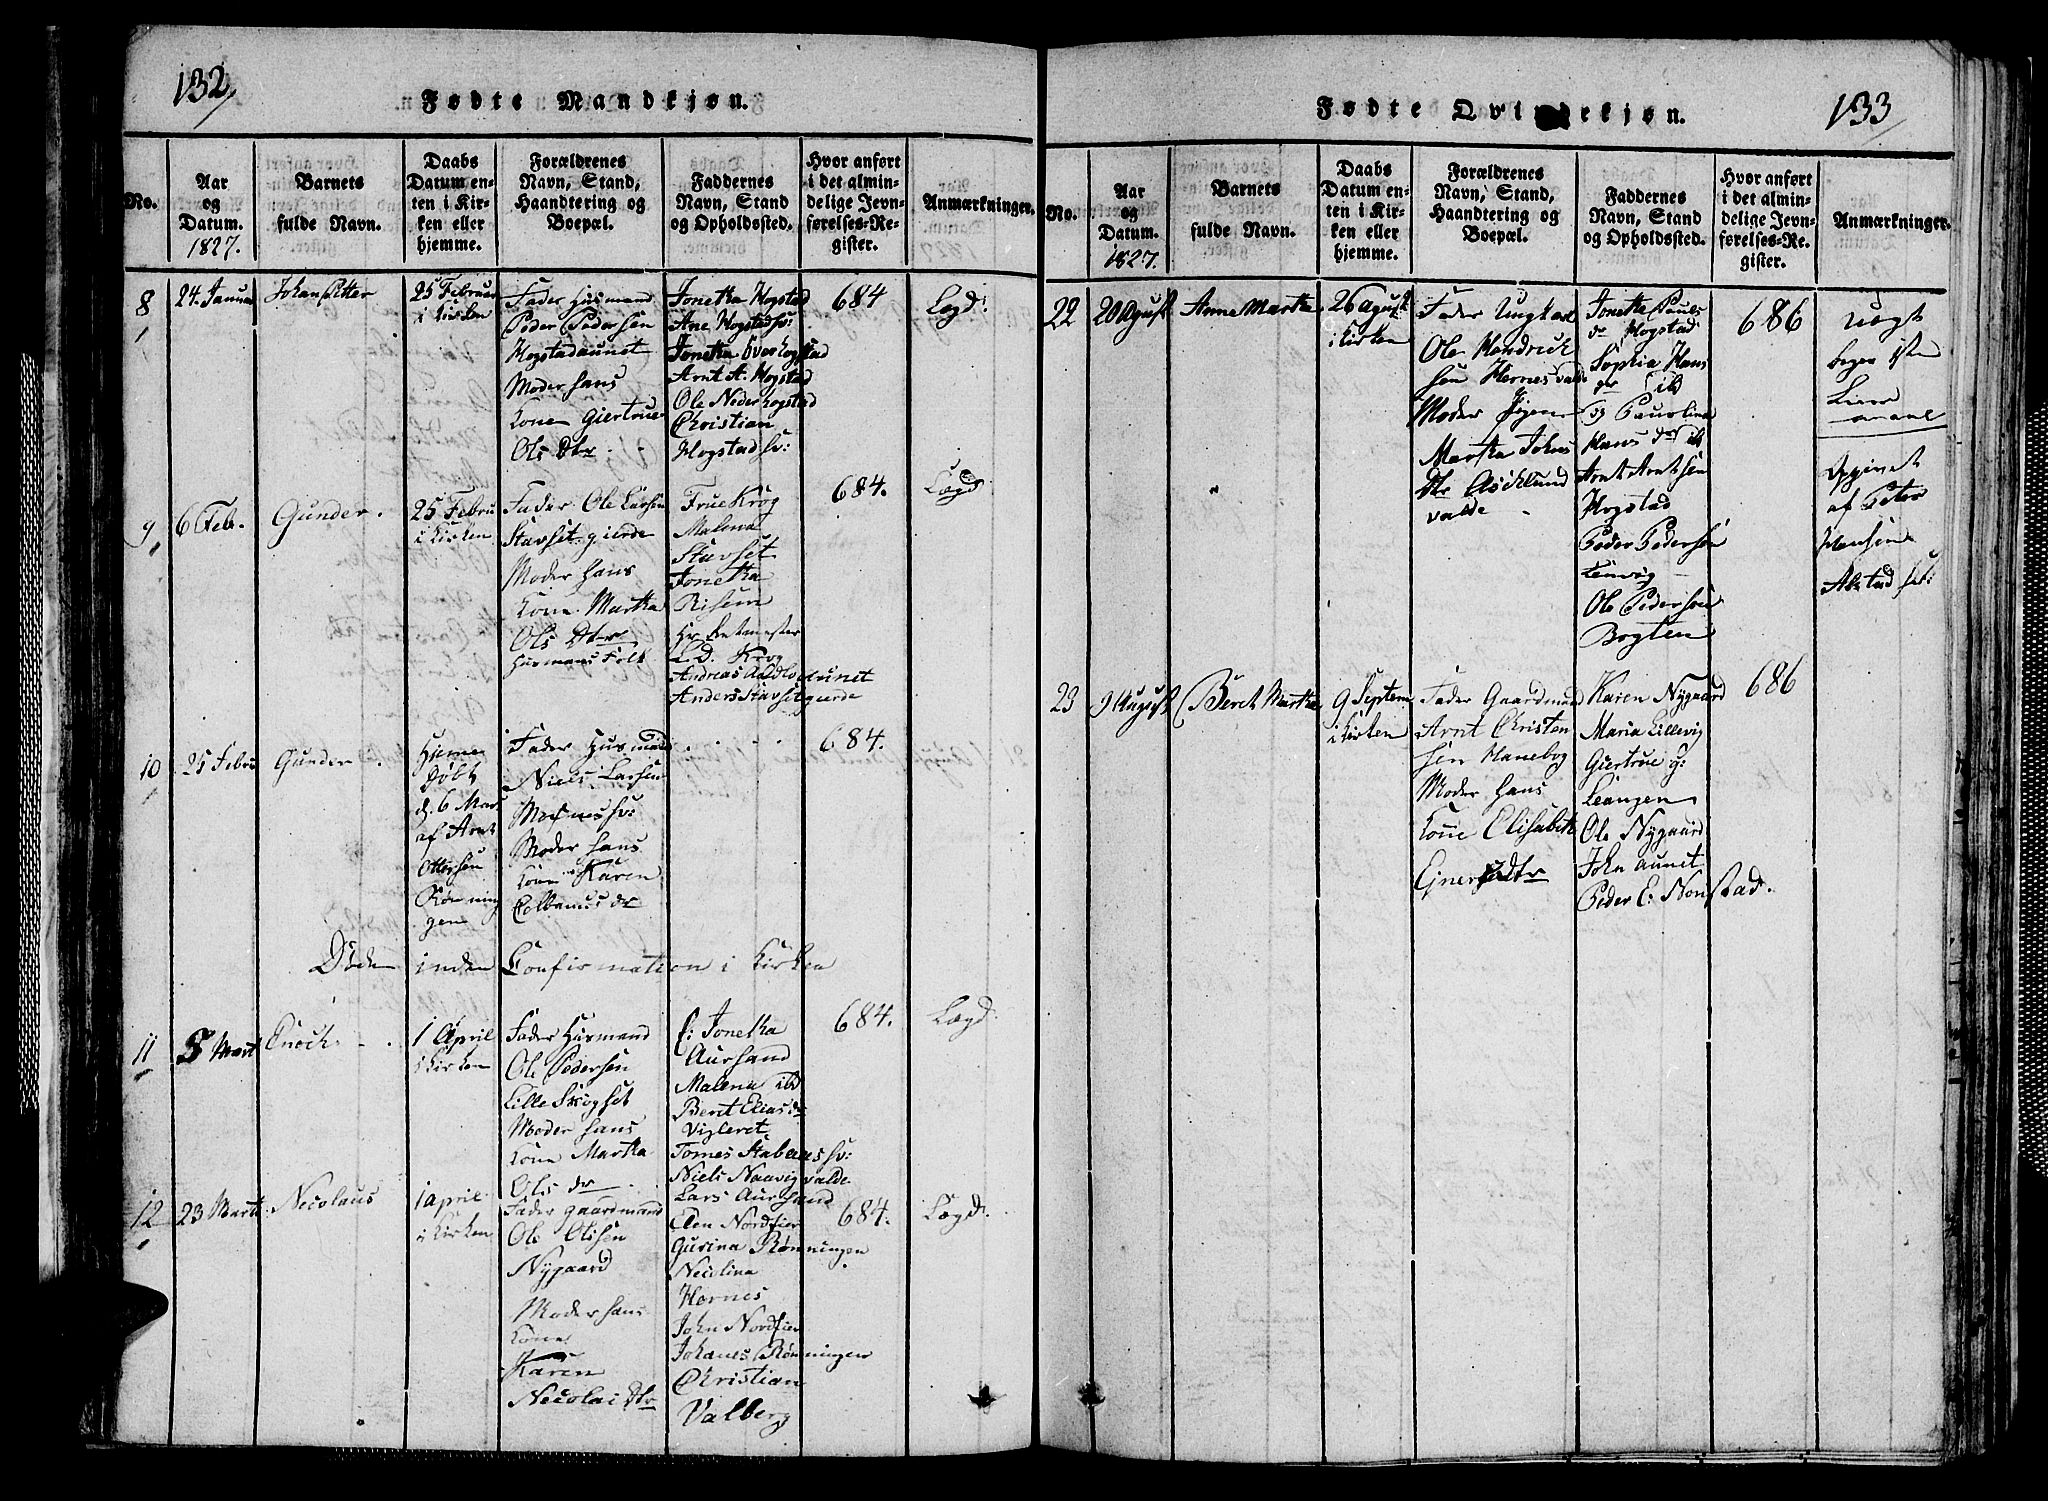 132
Fødte Mandkjøn.
No.
Aar
og
Datum.
1827.
Barnets
fulde Navn.
Daabs
Datum en-
ten i Kir-
ken eller
hjemme.
Forældrenes
Navn, Stand,
Haandtering og
Boepæl.
Faddernes
Navn, Stand
og Opholdssted.
Hvor anført
i det almin-
delige Jevn-
førelses-Re-
gister.
Anmærkninger.
8
24. Januar
Johan Petter
25 Februar
i Kirken
Fader Husmand
Peder Pedersen
Hogstadaunet
Moder hans
Kone Giertrue
Ols Dtr
Jonetha Hogstad
Ane Hogstad sv:
Jonetha Overhogstad
Arnt A. Hogstad
Ole Nederhogstad
Christian
Hogstad sv:
684
Lægd:
9
6 Feb.
Gunder.
25 Febru
i Kirken
Fader Ole Larsen
Stavset gierde
Moder hans
Kone Martha
Ols Dtr
Husmans Folk
Frue Krog
Malena
Stavset
Jonetha
Risem
Hr
L. D. Krog
Andreas aunet
Anders Stavsetgierde
684.
Lægd
10
25 Febru
Gunder.
Hjeme
Døbt
d. 6 Mar
af Arnt
Ottersen
Rønnin
gen
Fader Husmand
Niels Larsen
sv:
Moder hans
Kone Karen
Colbanus dr
684.
Døden inden Confirmation i Kirken
11
5 Mart
Enoch.
1 April
i Kirken
Fader Husmand
Ole Pedersen
Lille Skogset
Moder hans
Kone Martha
Ols dr
E: Jonetha
Aursand
Malena ibd
Beret Elias dr
Vigleret
Tomes Stabenes sv:
Niels Naavigvalde
Lars Aursand
684.
Lægd.
12
23 Marti
Necolaus
1 april
i Kirken
Fader gaardmand
Ole Olsen
Nygaard
Moder hans
Kone
Karen
Necolai Dtr
Elen Nordfier
Gurina Rønningen
Necolina
Hernes
John Nordfier
Johanes Rønningen
Christian
Valberg
684.
Lægd.
133
Fødte Qvindekjøn.
No.
Aar
og
Datum.
1827.
Barnets
fulde Navn.
Daabs
Datum en-
ten i Kir-
ken eller
hjemme.
Forældrenes
Navn, Stand,
Haandtering og
Boepæl.
Faddernes
Navn, Stand
og Opholdssted.
Hvor anført
i det almin-
delige Jevn-
førelses-Re-
gister.
Anmærkninger.
22
20 Agust
Anne Martha
26 Agust
i Kirken
Fader Ungkarl
Ole Hendrich
sen Hernes valde
Moder Pigen
Martha Johns
Dtr Asklund
valde
Jonetha Pauls
dr Hogstad
Sophia Hans
dr ib
og Paulina
Hans dr ib
Arnt Arntsen
Hogstad
Peder Pedersen
Lenvig
Ole Pedersen
Bogten
686
uægt
begge 1ste
Leier
maal
Oppivet
af Peter
Hansen
Alstad sæt:
23
9 August
Beret Martha
9 Septem
i Kirken
Fader Gaardmand
Arnt Christen
sen Hanebog
Moder hans
Kone Elisabeth
Ejnersdtr
Karen Nygaard
Maria Lillevig
Giertrue g:
Leangen
Ole Nygaard
John aunet
Peder E: Nonstad.
686